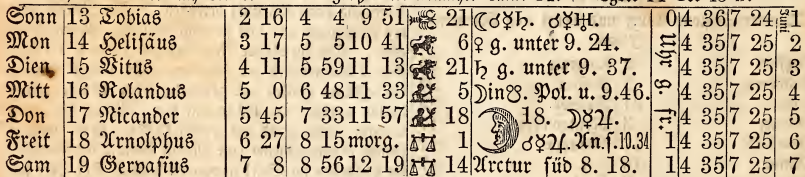 Sonn 13 Tobias 2 16 4 4 9 51 21 ☾☌☿♄. ☌☿♅. 0 4 36 7 24 1
Mon 14 Helisäus 3 17 5 5 10 41 6 ♀ g. unter 9. 24. 4 35 7 25 2
Dien 15 Vitus 4 11 5 59 11 13 21 ♄ g. unter 9. 37. 4 35 7 25 3
Mitt 16 Rolandus 5 0 6 48 11 33 5 ☽in☋. Pol. u. 9.46. 4 35 7 25 4
Don 17 Nicander 5 45 7 33 11 57 18 18. ☽☿♃. 4 35 7 25 5
Freit 18 Arnolphus 6 27 8 15 morg. 1 ☌☿♃. An. s. 10.34 1 4 35 7 25 6
Sam 19 Gervasius 7 8 8 56 12 19 14 Arctur süd 8. 18. 1 4 35 7 25 7
Uhr g.
fr.
Juni